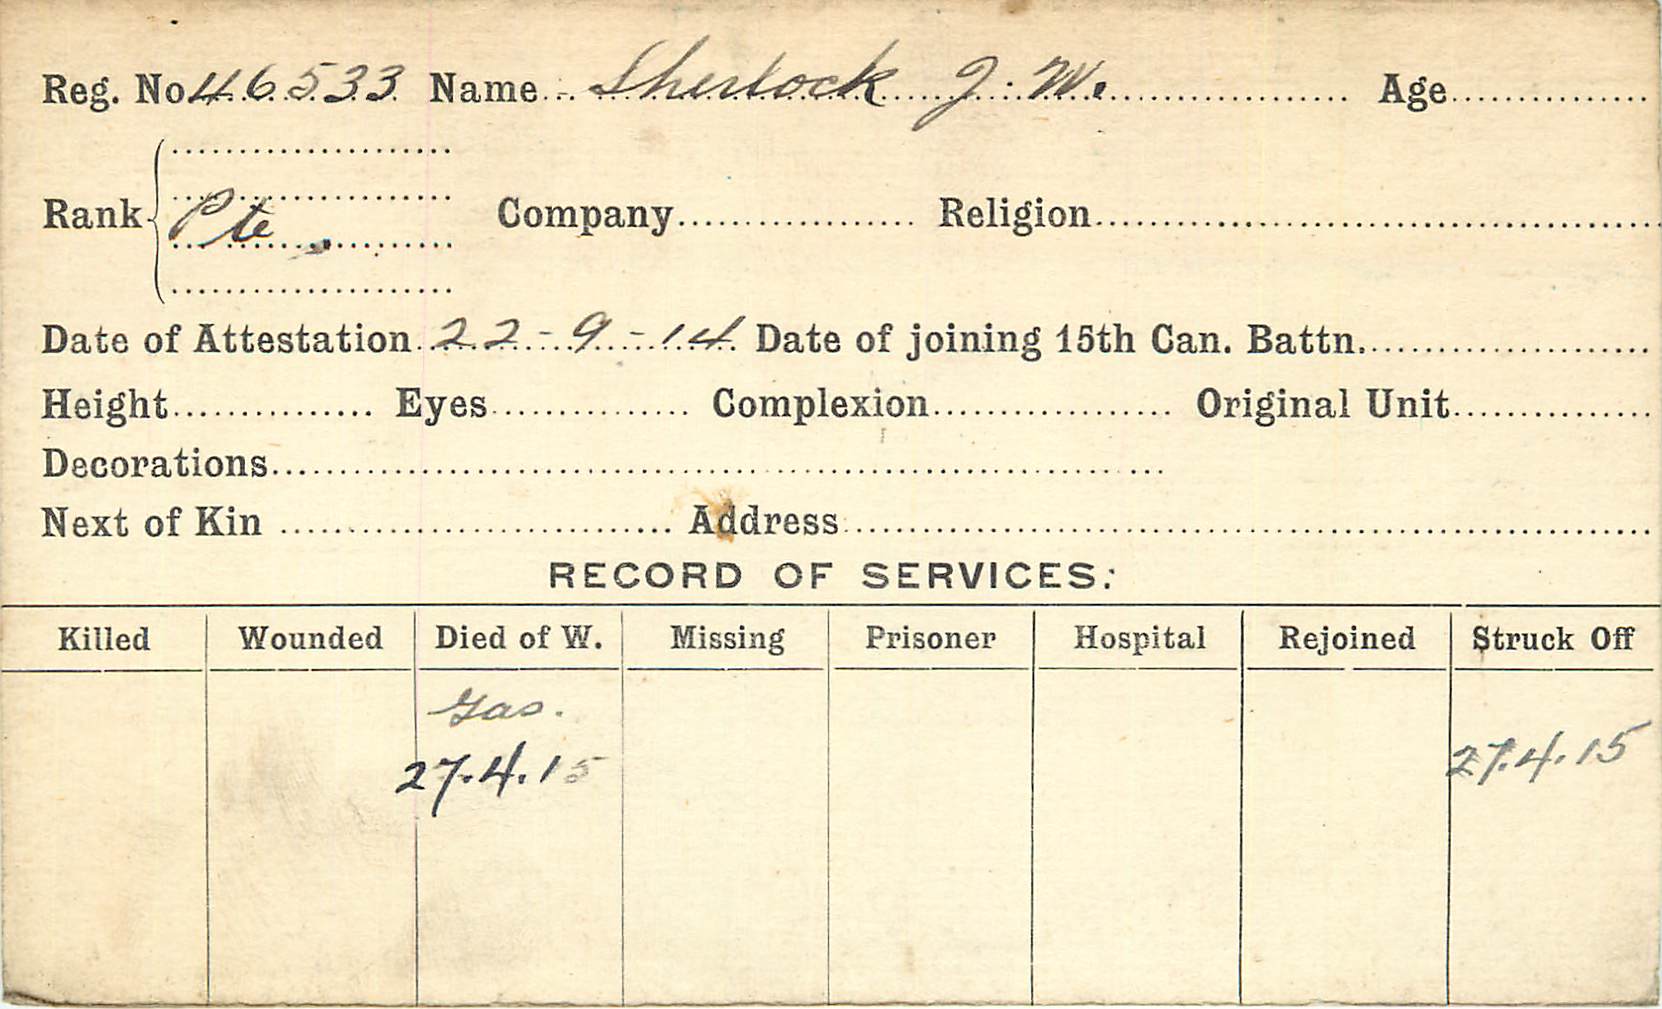 Reg. No. 46533 Name Sherlock J. W. Age
Rank Pte. Company Religion
Date of Attestation 22-9-14 Date of joining 15th Can. Battn.
Height Eyes Complexion Original Unit
Decorations
Next of Kin Address
RECORD OF SERVICES:
Killed Wounded Died of W. Missing Prisoner Hospital Rejoined Struck Off
Gas.
27.4.15 27.4.15